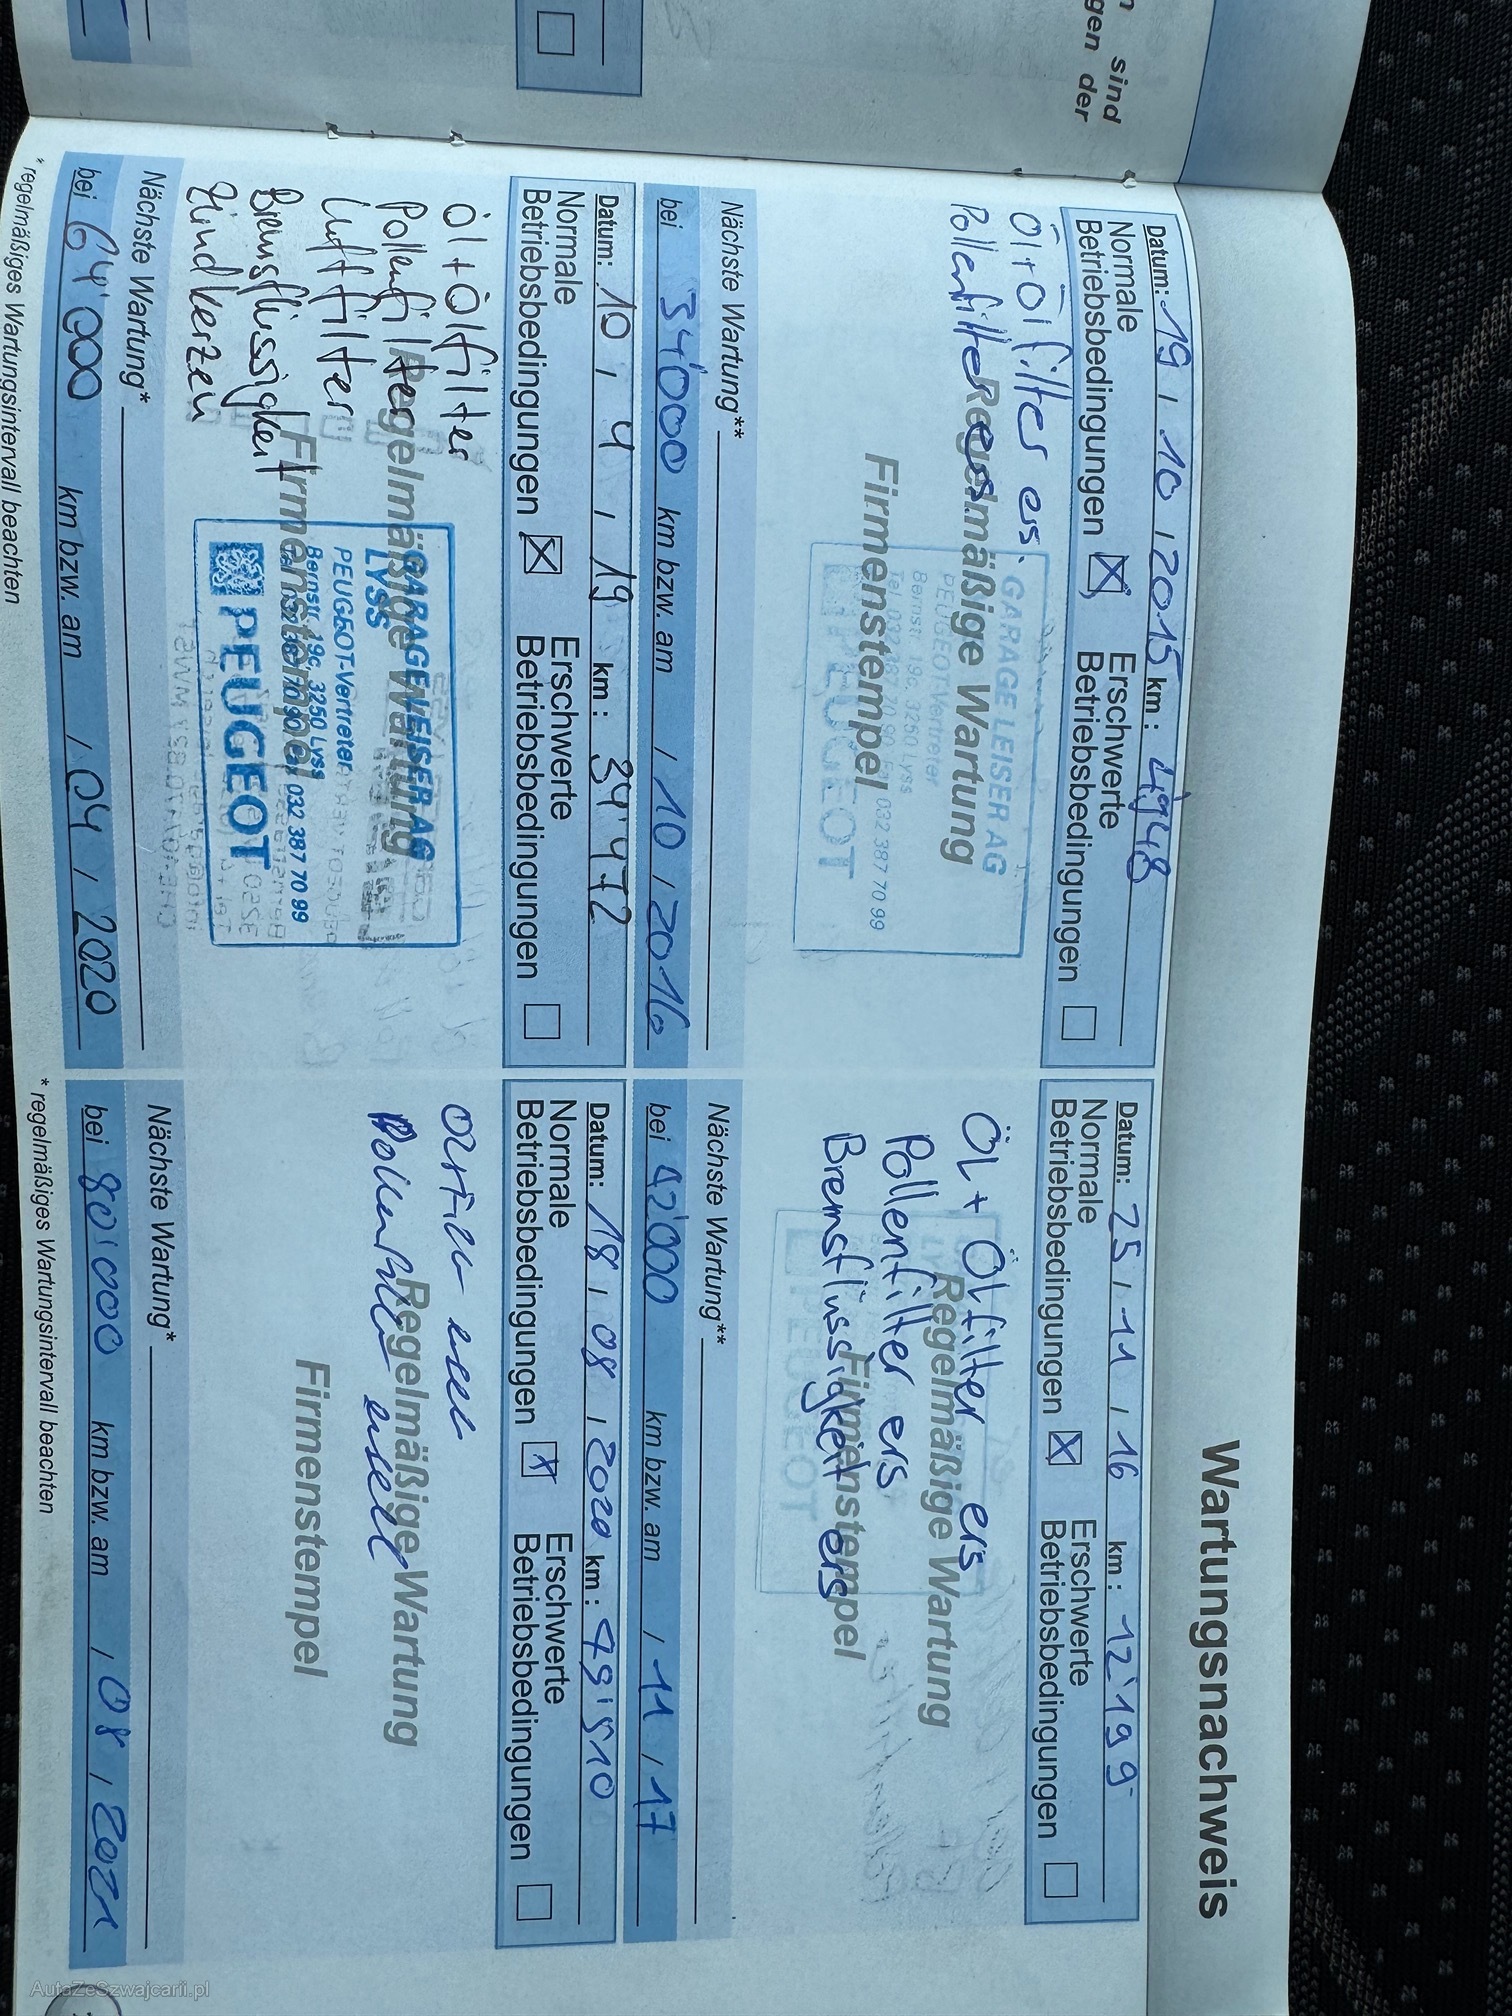 n sind
gen der
Wartungsnachweis
Datum: 19 / 10 / 2015 km: 4'948
Normale Betriebsbedingungen ☒ Erschwerte Betriebsbedingungen ☐
Öl+Ölfilter ers.
Pollenfilter ers
Regelmäßige Wartung
Firmenstempel
GARAGE LEISER AG
PEUGEOT-Vertreter
Bernstr. 19c, 3250 Lyss
032 387 70 99
PEUGEOT
Nächste Wartung**
bei 34'000 km bzw. am / 10 / 2016
Datum: 25 / 11 / 16 km: 12'199
Normale Betriebsbedingungen ☒ Erschwerte Betriebsbedingungen ☐
ÖL+ ÖLfilter ers
Pollenfilter ers
Bremsflüssigkeit ers
Regelmäßige Wartung
Firmenstempel
PEUGEOT
Nächste Wartung**
bei 42'000 km bzw. am / 11 / 17
Datum: 10 / 4 / 19 km: 34'472
Normale Betriebsbedingungen ☒ Erschwerte Betriebsbedingungen ☐
Öl+Ölfilter
Pollenfilter
Luftfilter
Bremsflüssigkeit
Zündkerzen
Regelmäßige Wartung
Firmenstempel
GARAGE LEISER AG
LYSS
PEUGEOT-Vertreter
Bernstr. 19c, 3250 Lyss
032 387 70 99
PEUGEOT
Nächste Wartung*
bei 64'000 km bzw. am / 04 / 2020
* regelmäßiges Wartungsintervall beachten
Datum: 18 / 08 / 2020 km: 49'510
Normale Betriebsbedingungen ☒ Erschwerte Betriebsbedingungen ☐
Pollenfilter
Regelmäßige Wartung
Firmenstempel
Nächste Wartung*
bei 80'000 km bzw. am / 08 / 2021
* regelmäßiges Wartungsintervall beachten
AutaZeSzwajcarii.pl